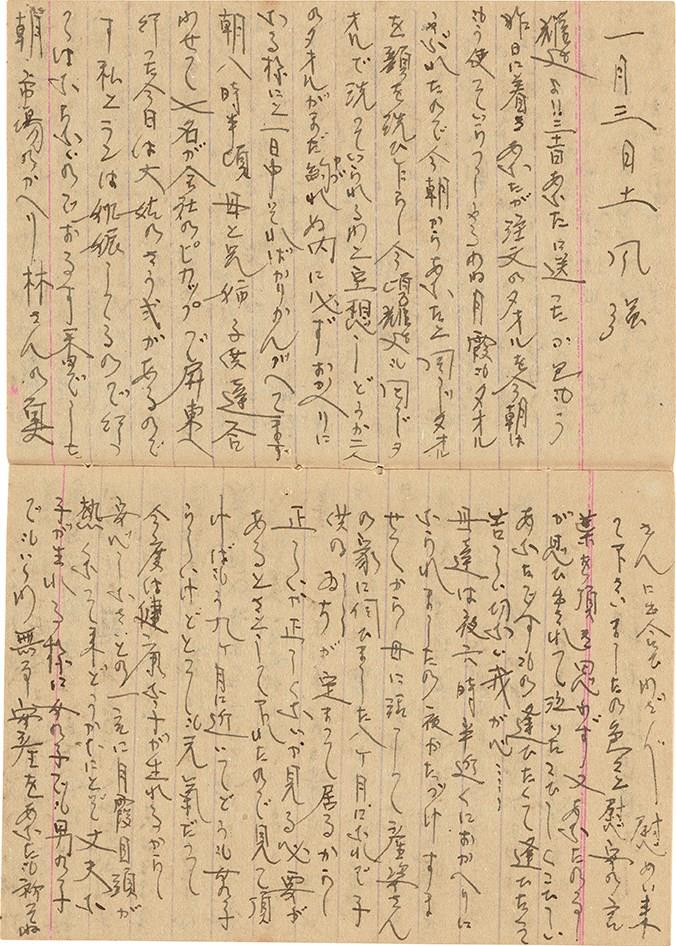 一月三日土 風強
耀文よ!!三十日あなたに送ったから もう
昨日に着きあなたが注文のタオルを今朝は
もう使っていらっしゃるわね 月霞もタオル
ぶれたので今朝からあなたと同じタオル
を顔を洗ひ 今頃耀文も同じタ
オルで洗っていられるわと空想しどうか二人
のタオルがまだ破れぬ内に必ずおかへりに
なる様にと一日中そればかりかんがへてます
朝八時半頃 母と兄姉子供達合
わせて七名が会社のピカップで屏東へ
行った今日は大姑のそう式があるので
す私とランは 妊娠してるので行っ
てはなら ないのでおるす番でした
朝市場のかへり 林さんの奥
さんに出会ひわざわざ慰めに来
て下さいましたの色々と慰安の言
葉を頂き思わず又あなたのお
が思ひ出されて泣いた こひしくこひしい
あなたですもの逢ひたくて逢ひたくて
苦しい切ない我が心……
母達は夜六時半近くにおかへりに
なられましたの夜かたづけすま
せてから母に話して産婆さん
の家に伺ひました八ヶ月になれば子
供の 位ちが定まって居るからし
正しいか正しくないか見る必要が
あると言って下れたので見て頂
けばもう九ヶ月に近いてどうも女の子
らしいけどとても元気だって
今度は健康な子が生れるからし
安心しなさいとの一言に月霞目頭が
熱くなって来どうかなにとぞ丈夫な
子が生れる様に女の子でも男の子
でもいいから無事安産をあなたも祈ってね